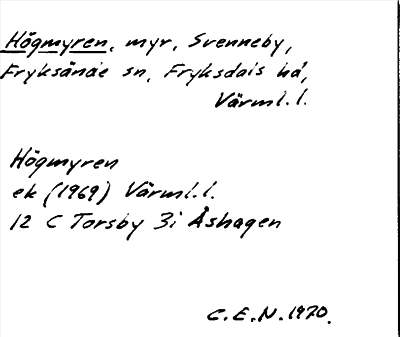 Högmyren, myr, Svenneby,
Fryksände sn, Fryksdals hd,
Värml.l.
Högmyren
ek (1969) Värml.l.
12 C Torsby 3i Åshagen
C.E.N. 1970.